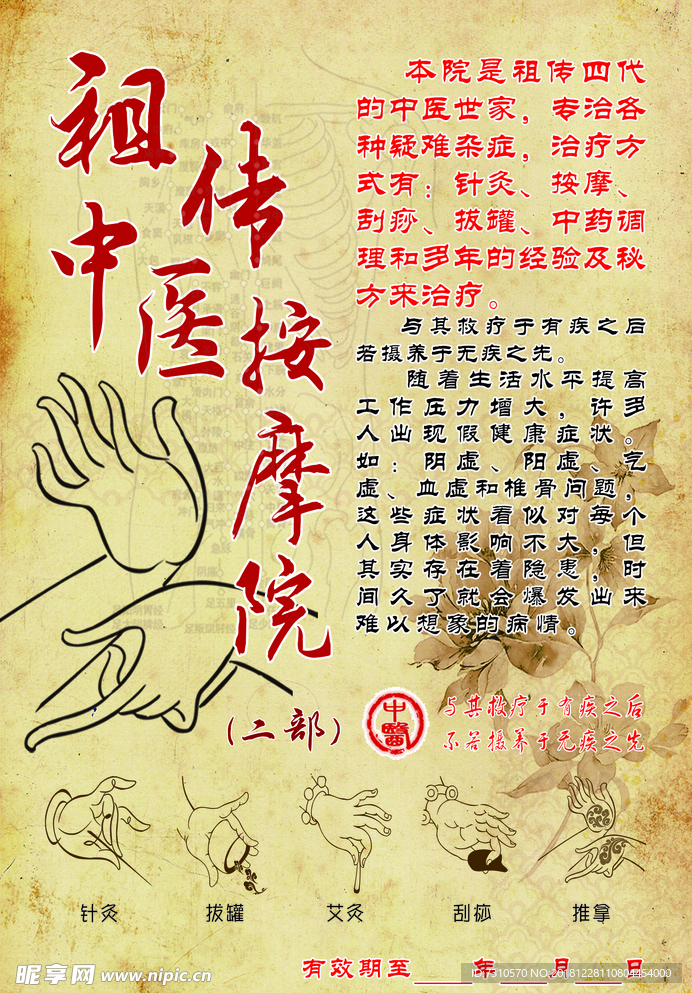 祖传
中医按
摩院
(二部)
本院是祖传四代
的中医世家，专治各
种疑难杂症，治疗方
式有：针灸、按摩、
刮痧、拔罐、中药调
理和多年的经验及秘
方来治疗。
与其救疗于有疾之后
若摄养于无疾之先。
随着生活水平提高
工作压力增大，许多
人出现假健康症状。
如：阴虚、阳虚、气
虚、血虚和椎骨问题，
这些症状看似对每个
人身体影响不大，但
其实存在着隐患，时
间久了就会爆发出来
难以想象的病情。
中醫
与其救疗于有疾之后
不若摄养于无疾之先
针灸 拔罐 艾灸 刮痧 推拿
有效期至____年____月____日
昵享网 www.nipic.cn
ID:7310570 NO:20181228110804454000